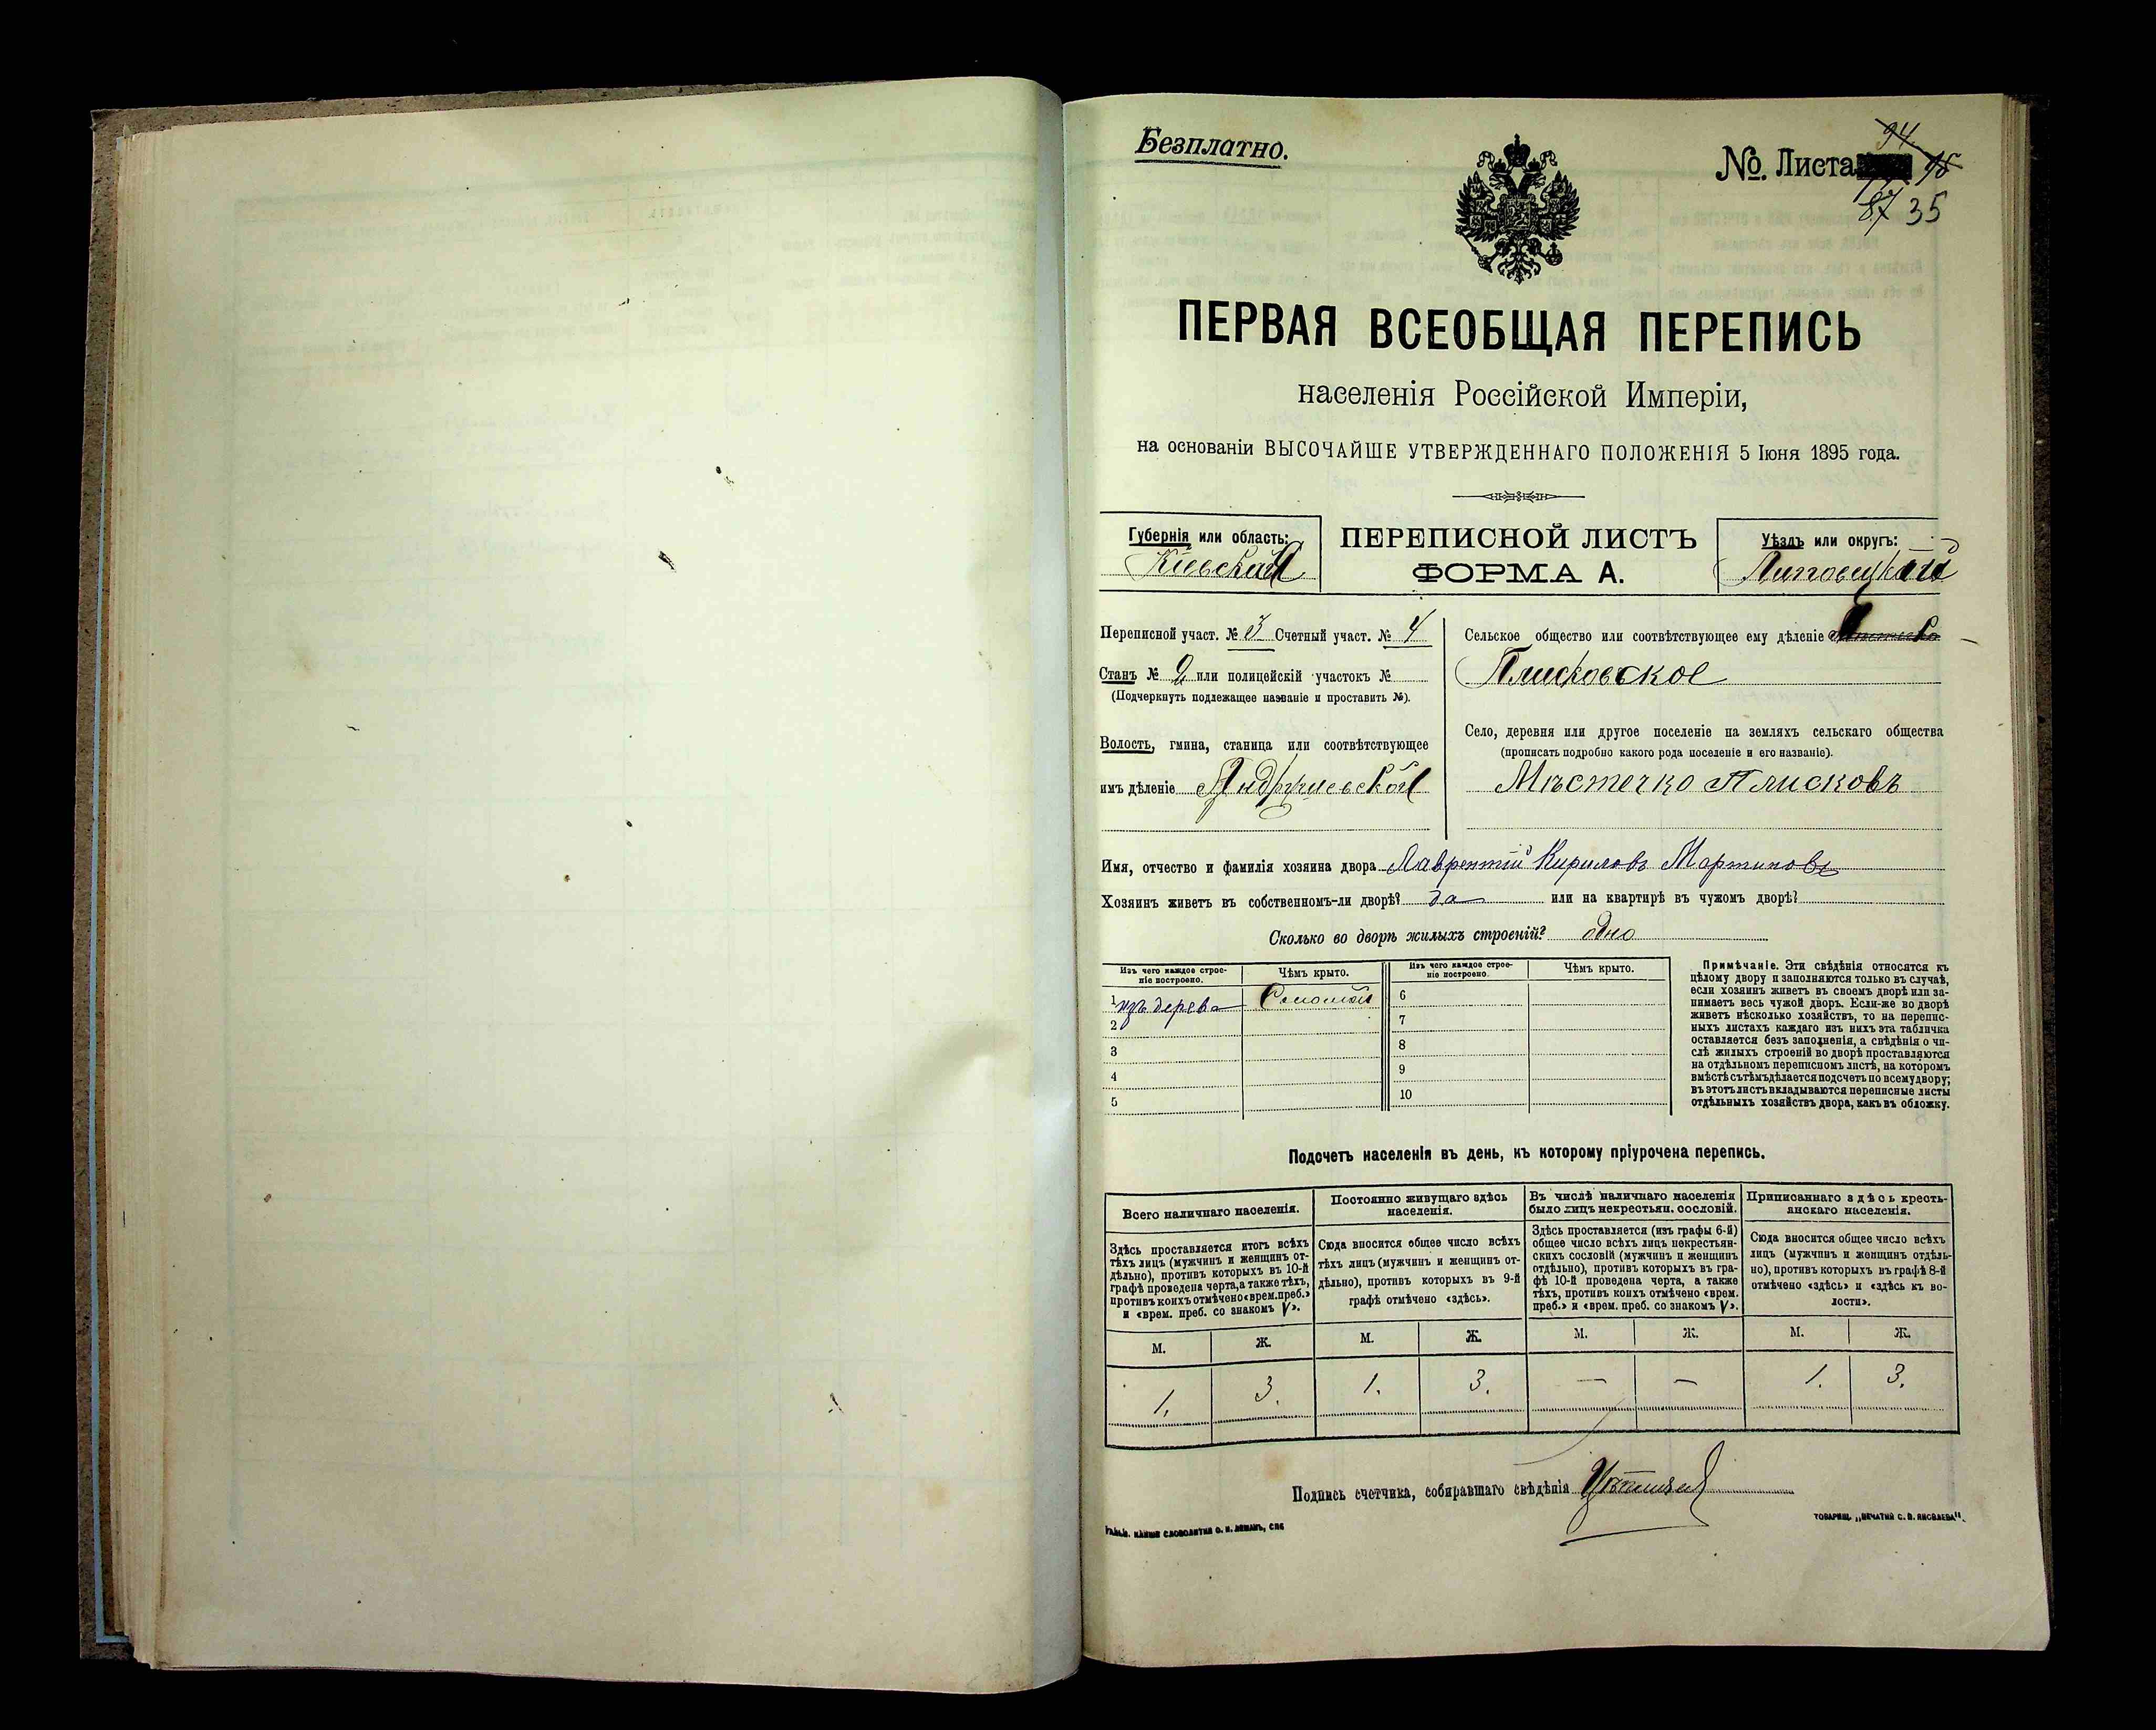 Безплатно.
№. Листа
94
95
87 35
ПЕРВАЯ ВСЕОБЩАЯ ПЕРЕПИСЬ
населенія Россійской Имперіи,
на основаніи ВЫСОЧАЙШЕ УТВЕРЖДЕННАГО ПОЛОЖЕНІЯ 5 Іюня 1895 года.
Губернія или область:
Кіевская
ПЕРЕПИСНОЙ ЛИСТЪ
ФОРМА А.
Уѣздъ или округъ:
Липовецкій
Переписной участ. № 3 Счетный участ. № 4
Станъ № 2 или полицейскій участокъ №
(Подчеркнуть подлежащее названіе и проставить №).
Волость, гмина, станица или соотвѣтствующее
имъ дѣленіе Андрушевской
Сельское общество или соотвѣтствующее ему дѣленіе
Плисковское
Село, деревня или другое поселеніе на земляхъ сельскаго общества
(прописать подробно какого рода поселеніе и его названіе).
Мѣстечко Плисковъ
Имя, отчество и фамилія хозяина двора Лаврентій Кириловъ Мартиновъ
Хозяинъ живетъ въ собственномъ-ли дворѣ? да или на квартирѣ въ чужомъ дворѣ?
Сколько во дворѣ жилыхъ строеній? одно
Изъ чего каждое строе-
ніе построено.
Чѣмъ крыто.
Изъ чего каждое строе-
ніе построено.
Чѣмъ крыто.
1 изъ дерева Соломой 6
2 7
3 8
4 9
5 10
Примѣчаніе. Эти свѣдѣнія относятся къ
цѣлому двору и заполняются только въ случаѣ,
если хозяинъ живетъ въ своемъ дворѣ или за-
нимаетъ весь чужой дворъ. Если-же во дворѣ
живетъ нѣсколько хозяйствъ, то на перепис-
ныхъ листахъ каждаго изъ нихъ эта табличка
оставляется безъ заполненія, а свѣдѣнія о чи-
слѣ жилыхъ строеній во дворѣ проставляются
на отдѣльномъ переписномъ листѣ, на которомъ
вмѣстѣ съ тѣмъ дѣлается подсчетъ по всему двору;
въ этотъ листъ вкладываются переписные листы
отдѣльныхъ хозяйствъ двора, какъ въ обложку.
Подсчетъ населенія въ день, къ которому пріурочена перепись.
Всего наличнаго населенія.
Здѣсь проставляется итогъ всѣхъ
тѣхъ лицъ (мужчинъ и женщинъ от-
дѣльно), противъ которыхъ въ 10-й
графѣ проведена черта, а также тѣхъ,
противъ коихъ отмѣчено «врем. преб.»
и «врем. преб. со знакомъ V».
Постоянно живущаго здѣсь
населенія.
Сюда вносится общее число всѣхъ
тѣхъ лицъ (мужчинъ и женщинъ от-
дѣльно), противъ которыхъ въ 9-й
графѣ отмѣчено «здѣсь».
Въ числѣ наличнаго населенія
было лицъ некрестьян. сословій.
Здѣсь проставляется (изъ графы 6-й)
общее число всѣхъ лицъ некрестьян-
скихъ сословій (мужчинъ и женщинъ
отдѣльно), противъ которыхъ въ гра-
фѣ 10-й проведена черта, а также
тѣхъ, противъ коихъ отмѣчено «врем.
преб.» и «врем. преб. со знакомъ V».
Приписаннаго здѣсь кресть-
янскаго населенія.
Сюда вносится общее число всѣхъ
лицъ (мужчинъ и женщинъ отдѣль-
но), противъ которыхъ въ графѣ 8-й
отмѣчено «здѣсь» и «здѣсь къ во-
лости».
М. Ж. М. Ж. М. Ж. М. Ж.
1. 3. 1. 3. — — 1. 3.
Подпись счетчика, собиравшаго свѣдѣнія
СЛОВОЛИТНЯ О. И. ЛЕМАНЪ, СПБ
ТОВАРИЩ. „ПЕЧАТНЯ С. П. ЯКОВЛЕВА“.